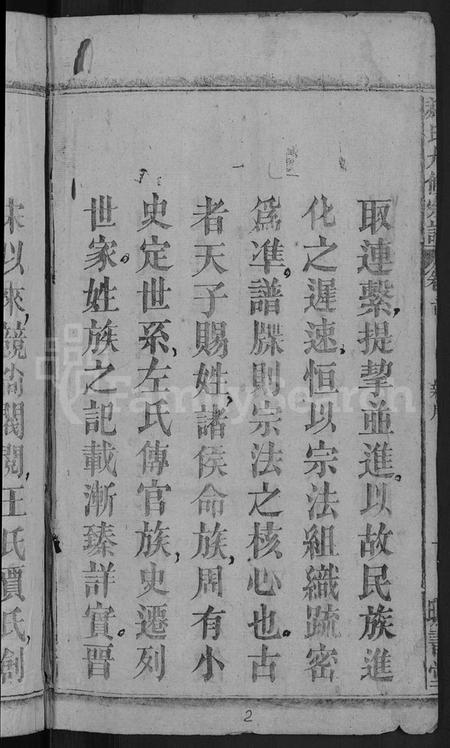 取連繫,提挈並進。以故民族進
化之遲速,恒以宗法組織䟽密
爲準。譜牒則宗法之核心也。古
者天子賜姓,諸侯命族,周有小
史定世系,左氏傳官族,史遷列
世家。姓族之記載漸臻詳實。晋
宋以來,競尙閥閱,王氏賈氏,創
氏九修宗譜
卷首
新序
2
FamilySearch